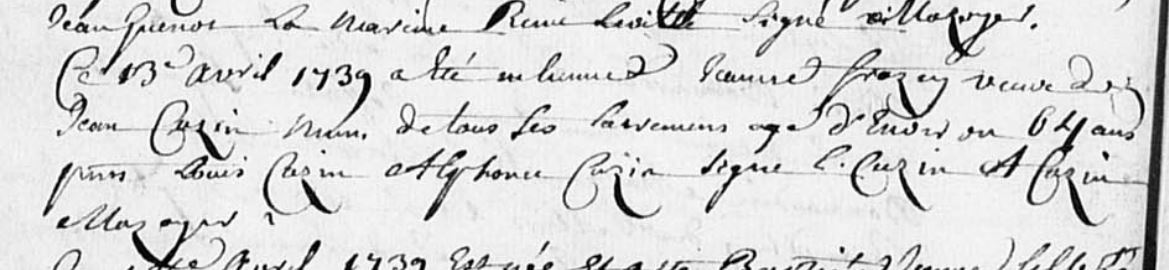 Jean Guenot La marinne René Signé Mozoyer.
Ce 13e avril 1739 a été inhumée Jeanne Grozey veuve de
Jean Cazin mun. de tous ses sacremens age d'Environ 64 ans
pnns Louis Cazin Alphonce Cazin Signe L. Cazin A Cazin
Mozoyer
avril 1739 Est née Et a été Baptisée